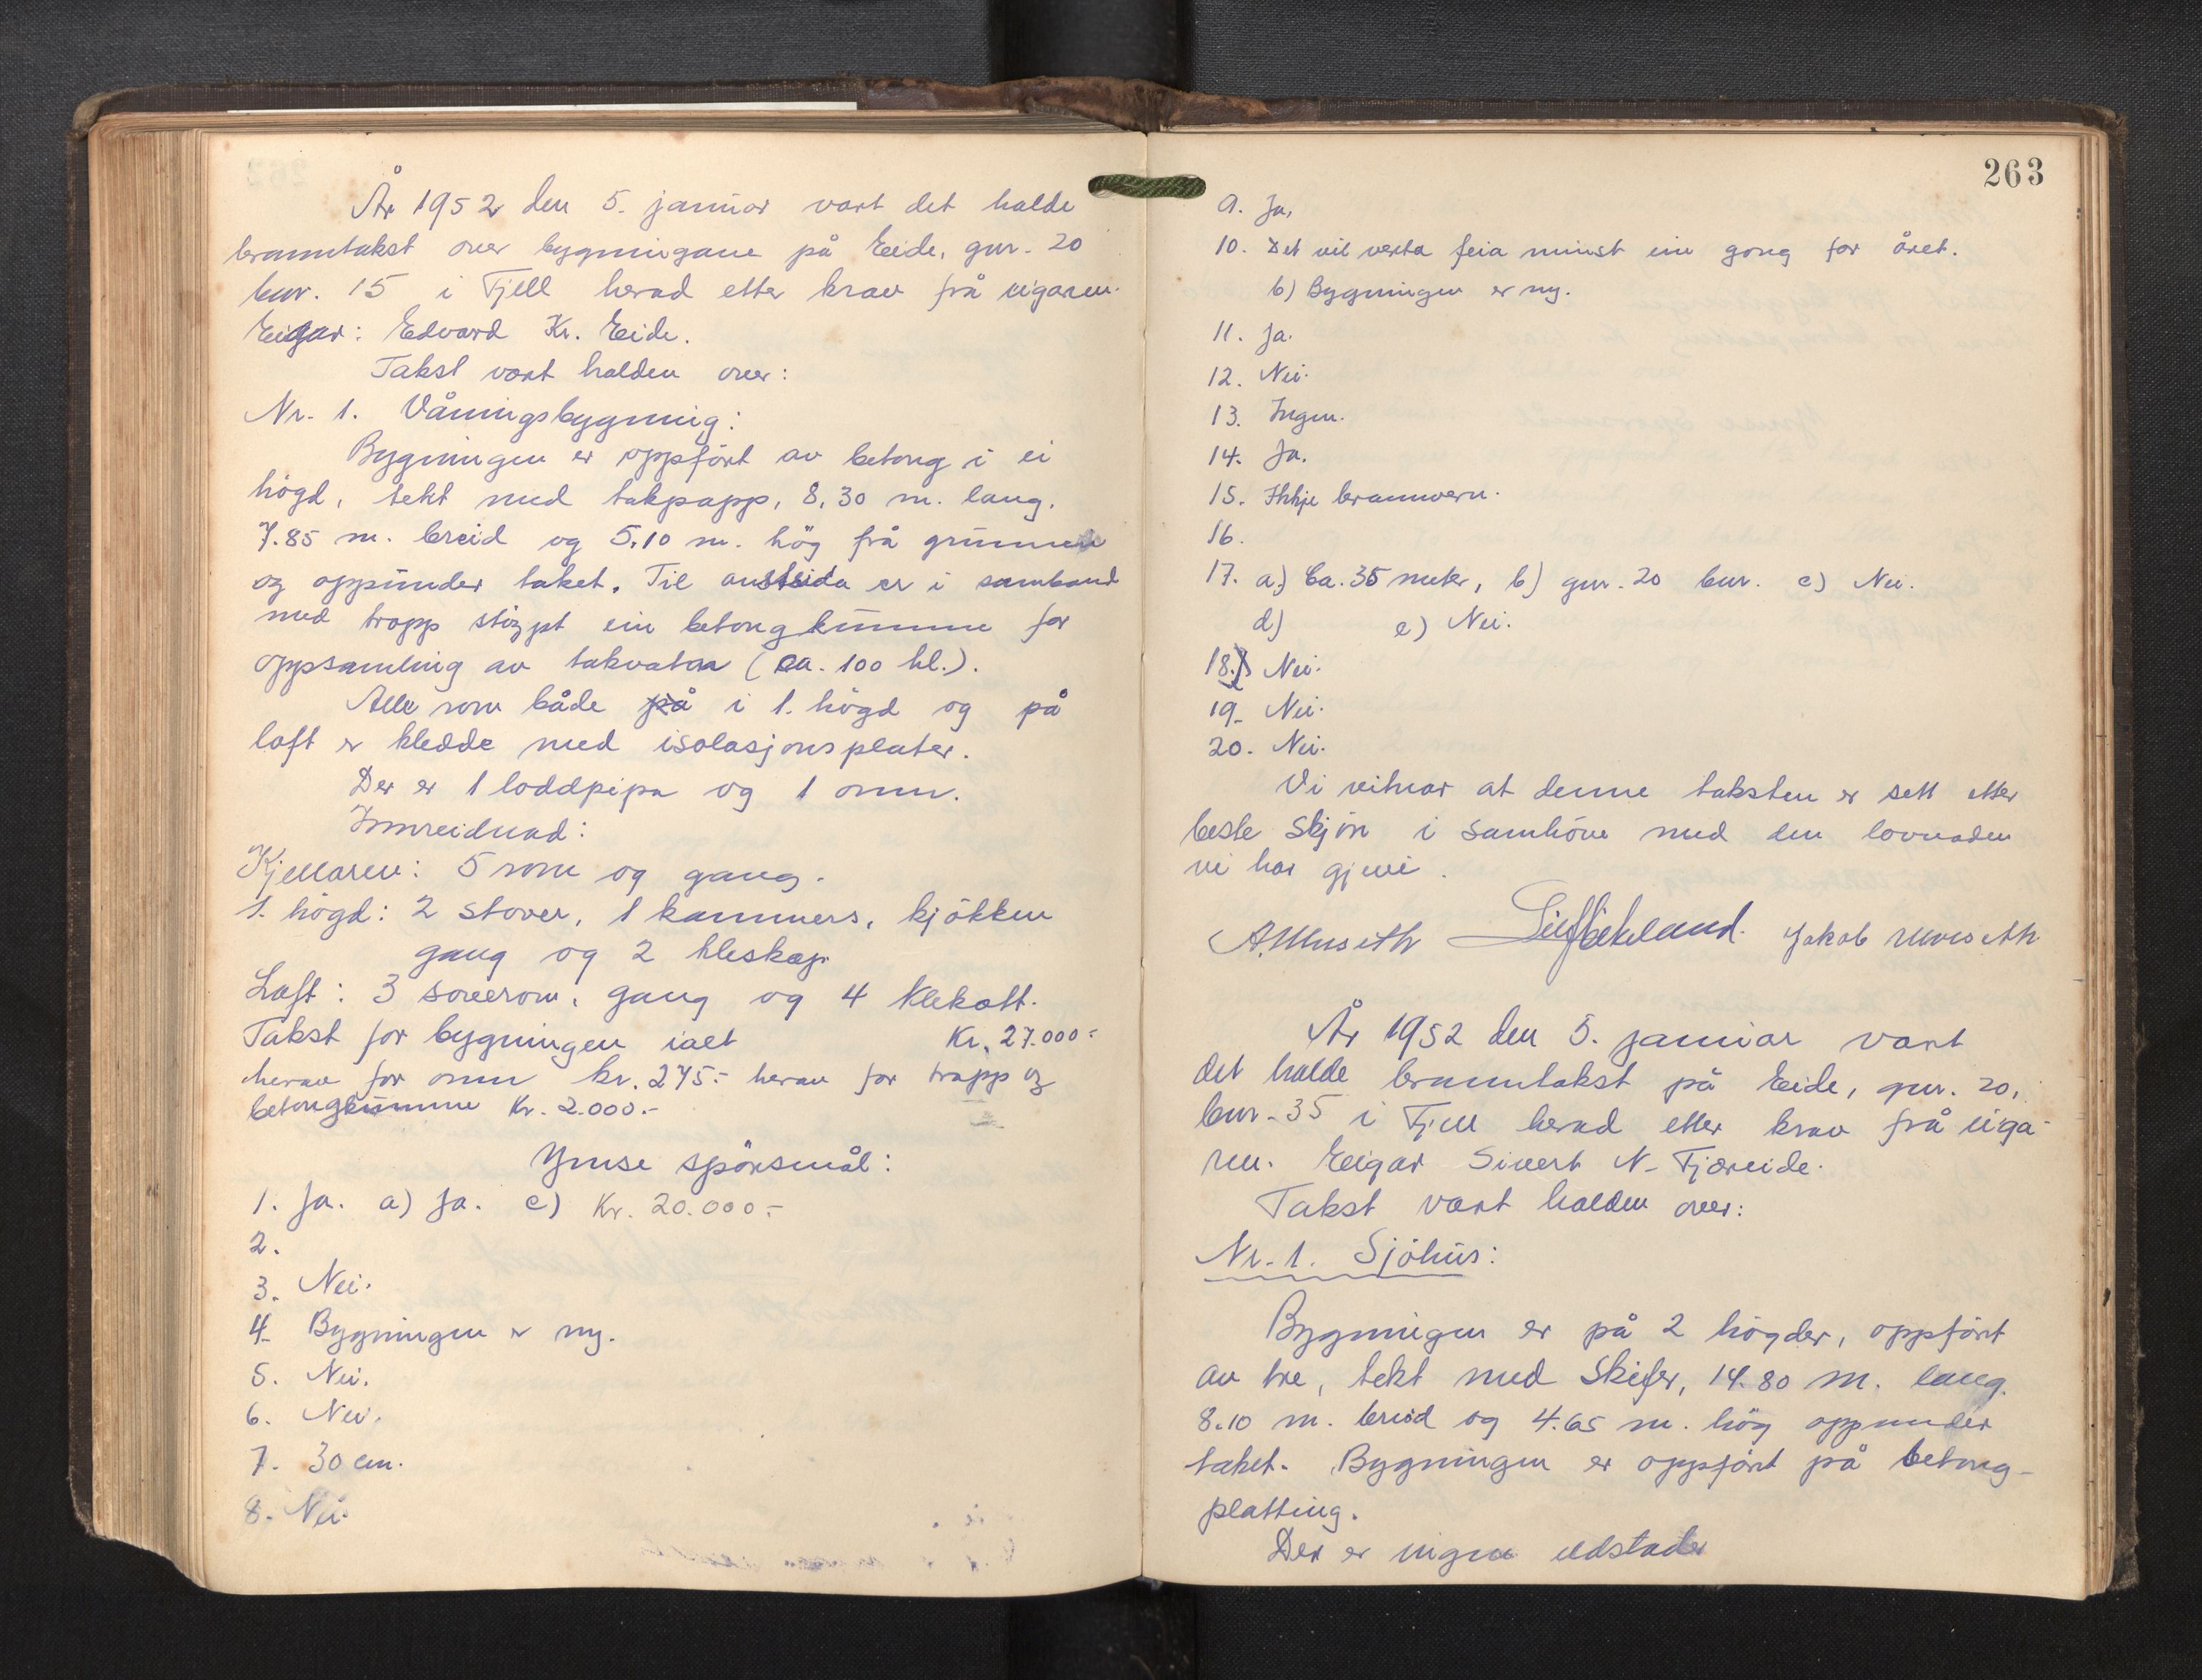 År 1952 den 5. januar vart det halde
branntakst over bygningane på Eide, gnr. 20
bnr. 15 i Fjell herad etter krav frå eigaren.
Eigar: Edvard Kr. Eide.
Takst vart halden over:
Nr. 1. Våningsbygning:
Bygningen er oppført av betong i ei
högd, tekt med takpapp, 8,30 m. lang,
7.85 m. breid og 5,10 m. hög frå grunnen
og oppunder taket. Til austsida er i samband
med trapp støypt ein betongkumme for
oppsamling av takvatn (ca. 100 hl.).
Alle rom både på i 1. högd og på
loft er kledde med isolasjonsplater.
Der er 1 loddpipa og 1 omn.
Innreidnad:
Kjellaren: 5 rom og gang.
1. högd: 2 stover, 1 kammers, kjökken
gang og 2 kleskap
Loft: 3 soverom, gang og 4 klekott.
Takst for bygningen ialt Kr. 27.000:-
herav for omn kr. 275:- herav for trapp og
betongkumme Kr. 2.000.-
Ymse spörsmål:
1. Ja. a) Ja. c) Kr. 20.000:-
2.
3. Nei.
4. Bygningen er ny.
5. Nei.
6. Nei.
7. 30 cm.
8. Nei.
263
9. Ja.
10. Det vil verta feia minst ein gong for året.
b) Bygningen er ny.
11. Ja.
12. Nei.
13. Ingen.
14. Ja.
15. Ikkje brannvern.
16.
17. a) Ca. 35 meter, b) gnr. 20 bnr. c) Nei.
d) e) Nei.
18. Nei.
19. Nei.
20. Nei.
Vi vitnar at denne taksten er sett etter
beste skjön i samhöve med den lovnaden
vi har gjevi.
Jakob
År 1952 den 5. januar vart
det halde branntakst på Eide, gnr. 20,
bnr. 35 i Fjell herad etter krav frå eiga-
ren. Eigar Sivert N. Fjæreide.
Takst vart halden over:
Nr. 1. Sjöhus:
Bygningen er på 2 högder, oppfört
av tre, tekt med skifer, 14.80 m. lang.
8.10 m. breid og 4.65 m. hög oppunder
taket. Bygningen er oppfört på betong-
platting.
Der er ingen eldstader